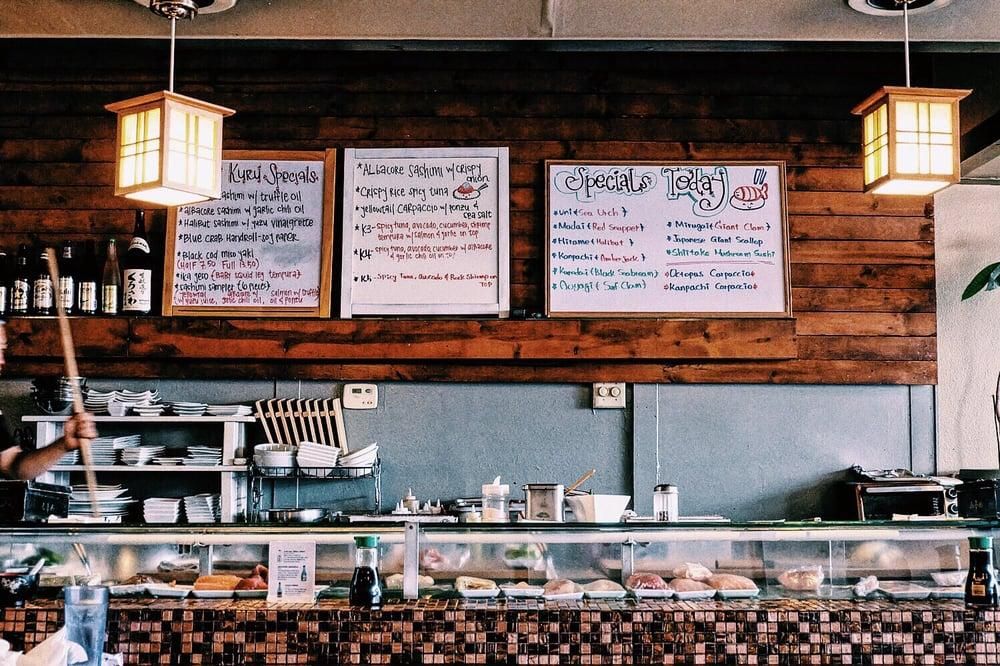 Kyru Specials
sashimi w/ truffle oil
*Albacore sashimi w/ garlic chili oil
*Halibut sashimi w/ yuzu vinaigrette
*Blue crab Handroll-soy paper
*Black cod miso yaki
(Half 7.50 Full 13.50)
*Ika geso (Baby squid leg tempura)
*sashimi sampler (6 pieces)
w/ yuzu juice, garlic chili oil, oil & ponzu
*Albacore sashimi w/ crispy onion
*Crispy rice spicy tuna
*yellowtail Carpaccio w/ yonzu & sea salt
*K3- spicy tuna, avocado, cucumber, shrimp tempura w/ salmon & garlic on top
*K4 spicy tuna, avocado, cucumber w/ albacore & garlic chili oil on top
*K5- Spicy Tuna, Avocado & Rock Shrimp on top
Specials Today
*Uni {Sea Urchin}
*Madai {Red Snapper}
*Hirame {Halibut}
*Kanpachi {Amberjack}
*Kurodai {Black Seabream}
*Aoyagi {Surf Clam}
*Mirugai {Giant Clam}
*Japanese Giant Scallop
*Shiitake Mushroom Sushi
*Octopus Carpaccio
*Kanpachi Carpaccio